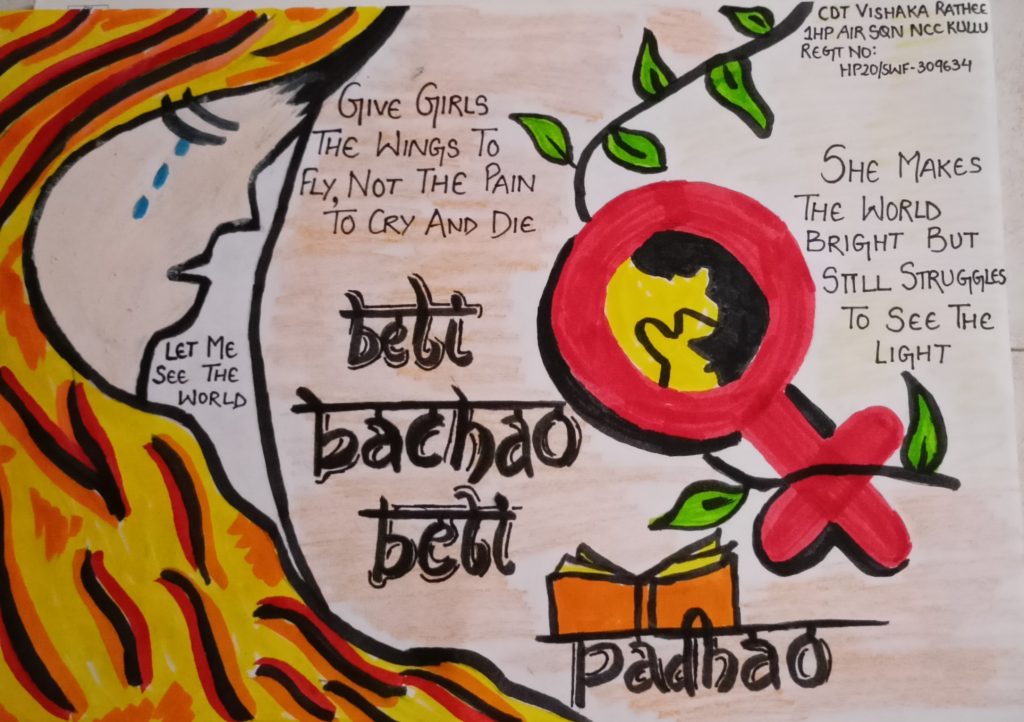 CDT VISHAKA RATHEE
1HP AIR SQN NCC KULLU
REGT NO:
HP20/SWF-309634
GIVE GIRLS
THE WINGS TO
FLY, NOT THE PAIN
TO CRY AND DIE
SHE MAKES
THE WORLD
BRIGHT BUT
STILL STRUGGLES
TO SEE THE
LIGHT
LET ME
SEE THE
WORLD
beti
bachao
beti
padhao